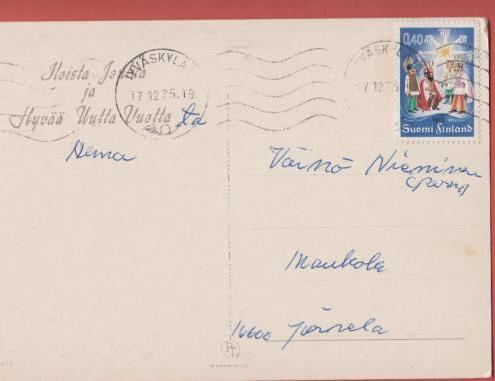 Iloista Joulua
ja
Hyvää Uutta Vuotta
JYVÄSKYLÄ
17.12.75.19
JYVÄSKYLÄ
17.12.75
0,40
Suomi Finland
Väinö Nieminen
Mankola
16600 Järvelä